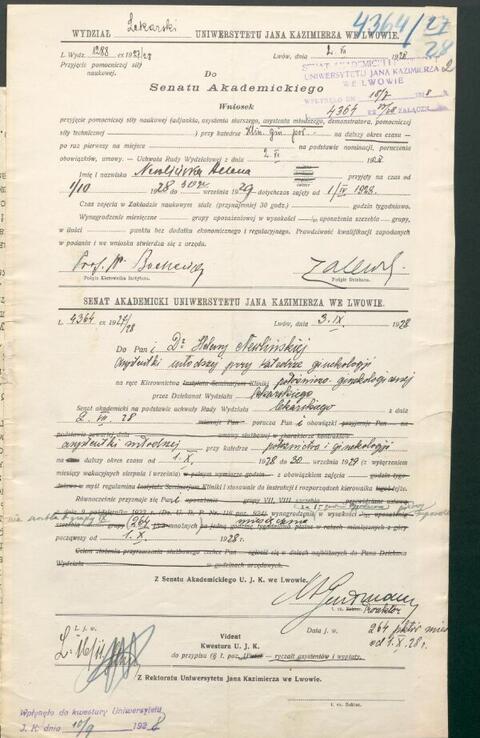 4364/27
28
WYDZIAŁ Lekarski UNIWERSYTETU JANA KAZIMIERZA WE LWOWIE.
L. Wydz. 1288 ex 1927/28 Lwów, dnia 2. VI 1928
Przyjęcie pomocniczej siły
naukowej.
SENAT AKADEMICKI
UNIWERSYTETU JANA KAZIMIERZA
WE LWOWIE
WPŁYNĘŁO DN. 10/7 192 8
4364 ex 27/28 ZAŁĄCZ.
Do
Senatu Akademickiego
Wniosek
przyjęcie pomocniczej siły naukowej (adjunkta, asystenta starszego, asystenta młodszego, demonstratora, pomocniczej
siły technicznej ) przy katedrze Klin. gin. poł. na dalszy okres czasu —
po raz pierwszy na miejsce na podstawie nominacji, poruczenia
obowiązków, umowy. – Uchwała Rady Wydziałowej z dnia 2. VI 192
Imię i nazwisko Newlińska Helena przyjęty na czas od
1/10 1928 do 30 września 1929 dotychczas zajęty od 1/IV 1928.
Czas zajęcia w Zakładzie naukowym stale (przynajmniej 30 godz.) godzin tygodniowo.
Wynagrodzenie miesięczne grupy uposażeniowej w wysokości uposażenia szczebla grupy,
w ilości punktów bez dodatku ekonomicznego i regulacyjnego. Prawdziwość kwalifikacji zapodanych
w podaniu i we wniosku stwierdza się z urzędu.
Prof.
Podpis Kierownika Instytutu. Podpis Dziekana.
SENAT AKADEMICKI UNIWERSYTETU JANA KAZIMIERZA WE LWOWIE.
L. 4364 ex 1927/28 Lwów, dnia 3. IX 1928
Do Pani Dr Heleny Newlińskiej
asystentki młodszej przy katedrze ginekologji
na ręce Kierownictwa Instytutu Seminarjum Kliniki położniczo ginekologicznej
przez Dziekanat Wydziału lekarskiego
Senat akademicki na podstawie uchwały Rady Wydziału lekarskiego z dnia
2. VII. 28 mianuje Pana porucza Pani obowiązki przyjmuje Pana na
podstawie umowy służbowej w charakterze kontraktow.
asystentki młodszej położnictwa i ginekologji
na dalszy okres czasu od 1. X 1928 do 30 września 1929 (z wyłączeniem
miesięcy wakacyjnych sierpnia i września) w pełnym wymiarze godzin
Kliniki i stosownie do instrukcji i rozporządzeń kierownika tegoż
Równocześnie przyznaje się Pani uposażenie grupy VII, VIII szczebla
z dnia 9 października 1923 r. (Dz. U. R. P. Nr. 116 poz. 924). wynagrodzenie w wysokości
grupy (264 miesięcznie
począwszy od 1. X 1928 r.
Celem złożenia przyrzeczenia służbowego zechce Pan zgłosić się w dniach najbliższych do Pana Dziekana
Wydziału w godzinach urzędowych.
Z Senatu Akademickiego U. J. K. we Lwowie.
t. cz. Rektor.
Prorektor
L. j. w. Data j. w.
264 pktów mies
od 1. X. 28 r.
Videat
Kwestura U. J. K.
do przypisu (§ 1. poz. ) — ryczałt asystentów i wypłaty.
Z Rektoratu Uniwersytetu Jana Kazimierza we Lwowie.
t. cz. Rektor.
Wpłynęło do kwestury Uniwersytetu
J. K. dnia 10/9 1928